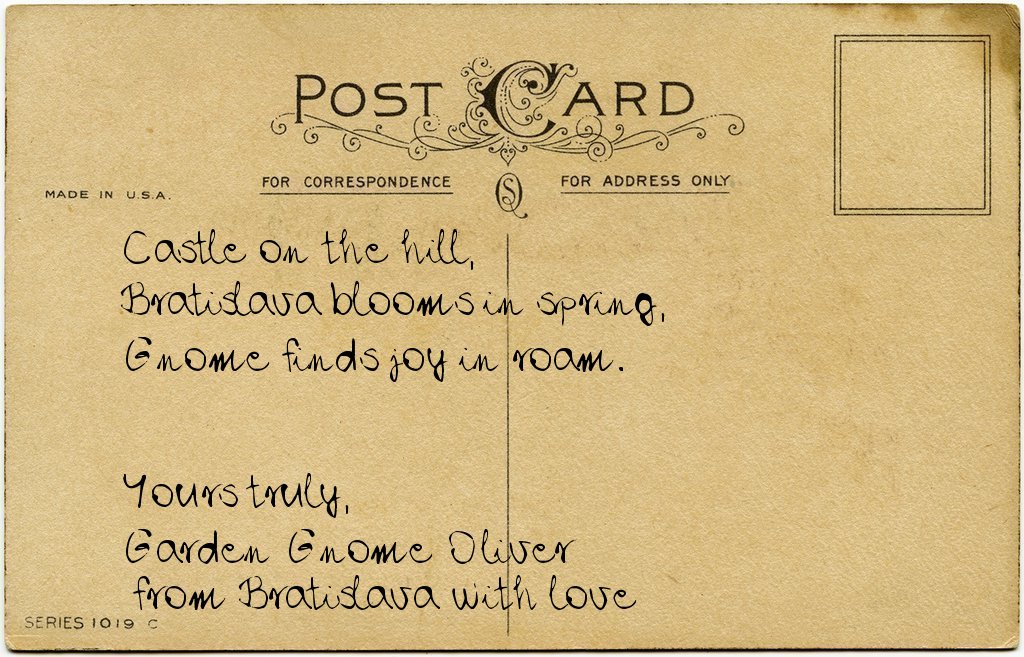 POST CARD
FOR CORRESPONDENCE
FOR ADDRESS ONLY
MADE IN U.S.A.
Castle on the hill,
Bratislava blooms in spring,
Gnome finds joy in roam.
Yours truly,
Garden Gnome Oliver
from Bratislava with love
SERIES 1019 C